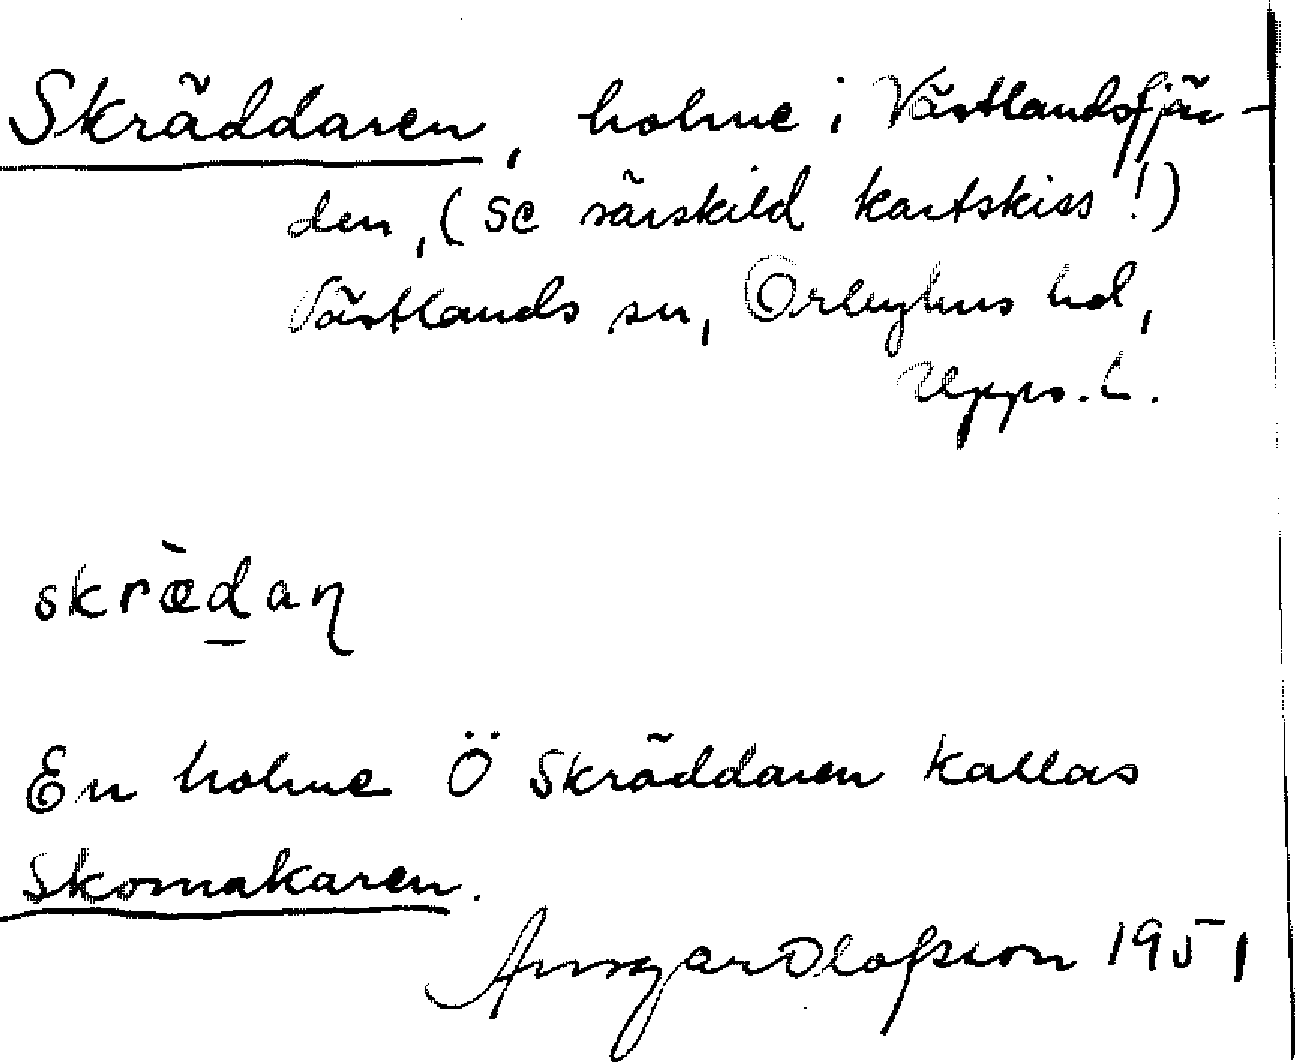 Skräddaren, holme i Västlandsfjär-
den, (se särskild kartskiss!)
Västlands sn, Örbyhus hd,
Upps. L.
skræ̀d̲aɳ
En holme Ö Skräddaren kallas
Skomakaren.
Ansgar Olofsson 1951